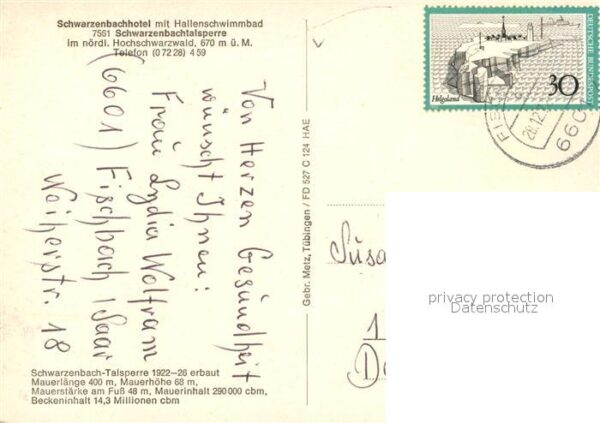 Schwarzenbachhotel mit Hallenschwimmbad
7561 Schwarzenbachtalsperre
im nördl. Hochschwarzwald, 670 m ü. M.
Telefon (0 72 28) 4 59
Von Herzen Gesundheit
wünscht Ihnen:
Frau Lydia Wolfram
(6601) Fischbach / Saar
Weiherstr. 18
Schwarzenbach-Talsperre 1922—26 erbaut
Mauerlänge 400 m, Mauerhöhe 68 m,
Mauerstärke am Fuß 48 m, Mauerinhalt 290 000 cbm,
Beckeninhalt 14,3 Millionen cbm
Gebr. Metz, Tübingen / FD 527 C 124 HAE
DEUTSCHE BUNDESPOST
Helgoland
30
28.12.
660
Susa
1
privacy protection
Datenschutz